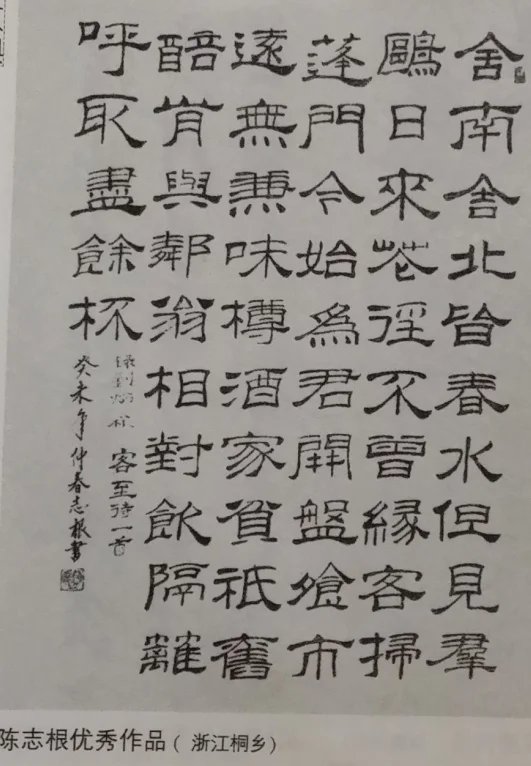 舍南舍北皆春水但見羣
鷗日來花徑不曾緣客掃
蓬門今始爲君開盤飧市
遠無兼味樽酒家貧祇舊
醅肯與鄰翁相對飲隔離
呼取盡餘杯
客至诗一首
癸未年仲春志根書
陈志根优秀作品（浙江桐乡）